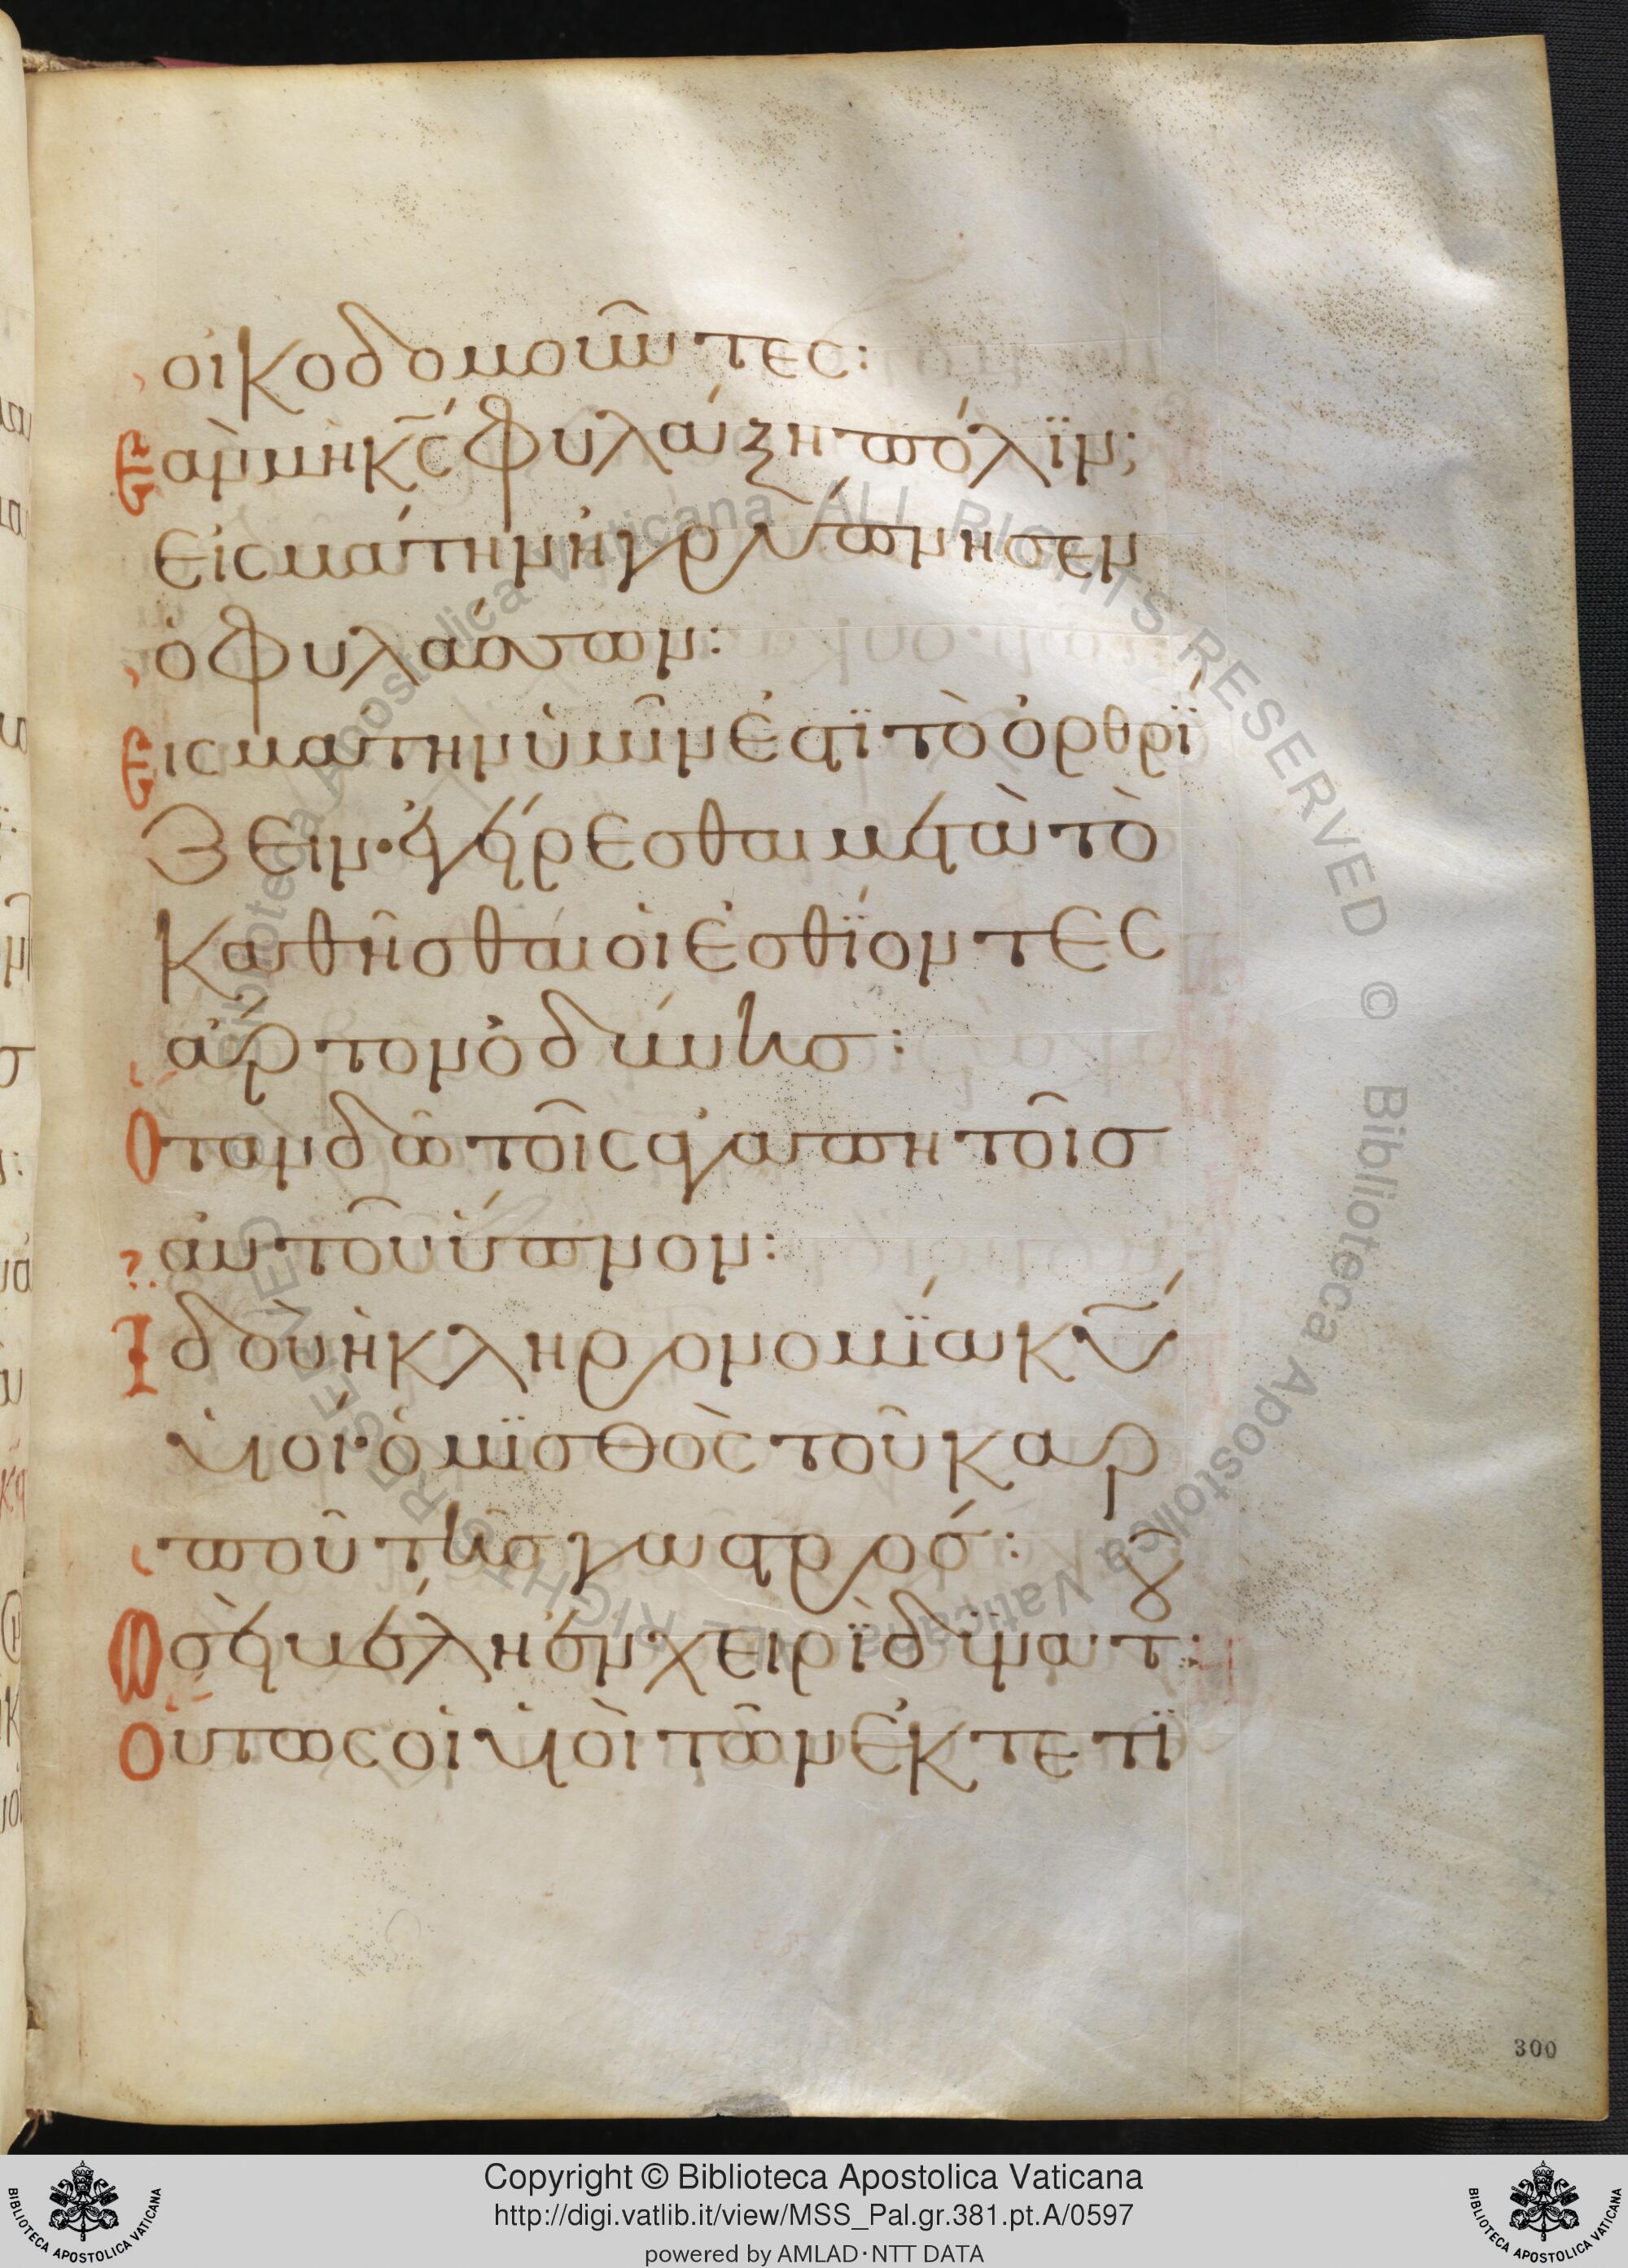 οἰκοδομοῦντες:
Ἐὰν μὴ κ̅ς̅ φυλάξη πόλϊν;
εἰς μάτην ἠγρύπνησεν
ὁ φυλάσσων:
Εἰς μάτην ὑμῖν ἐστϊ τὸ ὀρθρΐ
ζειν· ἐγείρεσθαι μετὰ τὸ
καθῆσθαι οἱ ἐσθΐοντες
ἄρτον ὀδύνης:
Ὅταν δῶ τοῖς ἀγαπητοῖσ
αὐτοῦ ὕπνον:
Ἰδοὺ ἡ κληρονομΐα κ̅υ̅
υἱοί· ὁ μϊσθὸς τοῦ καρ
ποῦ τῆς γαστρός:
Ὡσεὶ βέλη ἐν χειρῒ δυνατ:
Οὕτως οἱ υἱοὶ τῶν ἐκτετϊ
300
Copyright © Biblioteca Apostolica Vaticana
http://digi.vatlib.it/view/MSS_Pal.gr.381.pt.A/0597
powered by AMLAD·NTT DATA
BIBLIOTECA APOSTOLICA VATICANA
BIBLIOTECA APOSTOLICA VATICANA
Biblioteca Apostolica Vaticana ALL RIGHTS RESERVED © Biblioteca Apostolica Vaticana ALL RIGHTS RESERVED